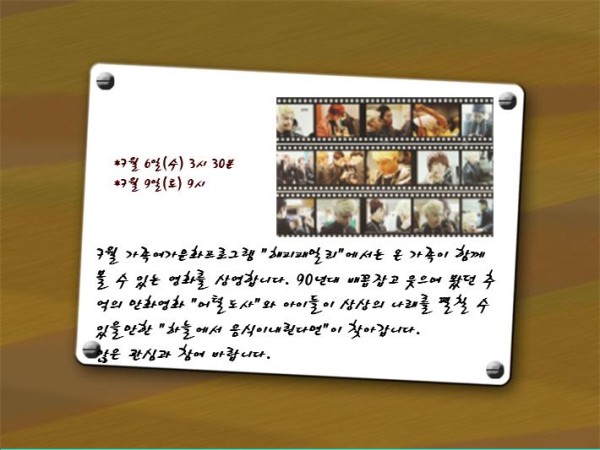 *7월 6일(수) 3시 30분
*7월 9일(토) 9시
7월 가족여가문화프로그램 "해피패밀리"에서는 온 가족이 함께
볼 수 있는 영화를 상영합니다. 90년대 배꼽잡고 웃으며 봤던 추
억의 만화영화 "머털도사"와 아이들이 상상의 나래를 펼칠 수
있을만한 "하늘에서 음식이내린다면"이 찾아갑니다.
많은 관심과 참여 바랍니다.